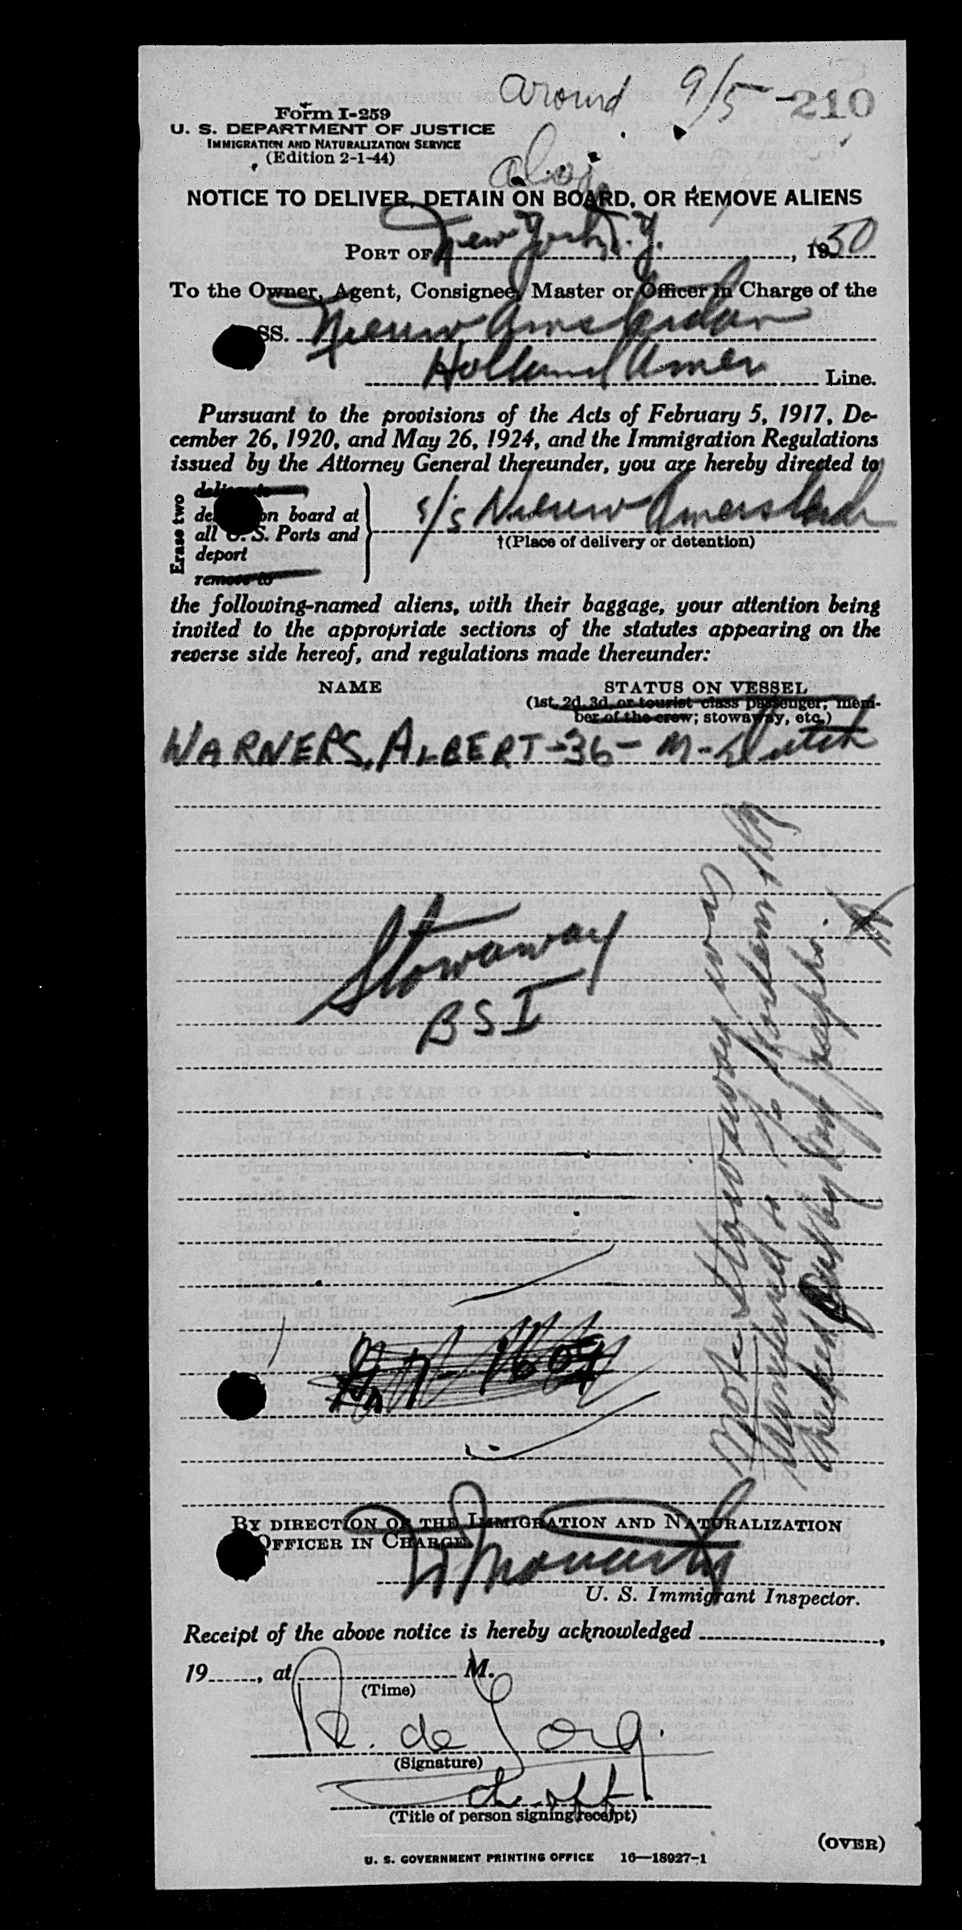 around 9/5 - 210
Form I-259
U. S. DEPARTMENT OF JUSTICE
IMMIGRATION AND NATURALIZATION SERVICE
(Edition 2-1-44)
NOTICE TO DELIVER, DETAIN ON BOARD, OR REMOVE ALIENS
PORT OF New York N.Y., 1950
To the Owner, Agent, Consignee, Master or Officer in Charge of the
SS. Nieuw Amsterdam
Holland Amer Line.
Pursuant to the provisions of the Acts of February 5, 1917, De-
cember 26, 1920, and May 26, 1924, and the Immigration Regulations
issued by the Attorney General thereunder, you are hereby directed to
Erase two
deliver to
on board at
all U. S. Ports and
deport
remove to
s/s Nieuw Amersterdam
†(Place of delivery or detention)
the following-named aliens, with their baggage, your attention being
invited to the appropriate sections of the statutes appearing on the
reverse side hereof, and regulations made thereunder:
NAME STATUS ON VESSEL
(1st, 2d, 3d, or tourist class passenger; mem-
ber of the crew; stowaway, etc.)
WARNERS, ALBERT - 36 - M - Dutch
Stowaway
BSI
Note: Stowaway was
to
by
BY DIRECTION OF THE IMMIGRATION AND NATURALIZATION
OFFICER IN CHARGE
U. S. Immigrant Inspector.
Receipt of the above notice is hereby acknowledged ,
19 , at M.
(Time)
de Jong.
(Signature)
(Title of person signing receipt)
(OVER)
U. S. GOVERNMENT PRINTING OFFICE 16—18927-1